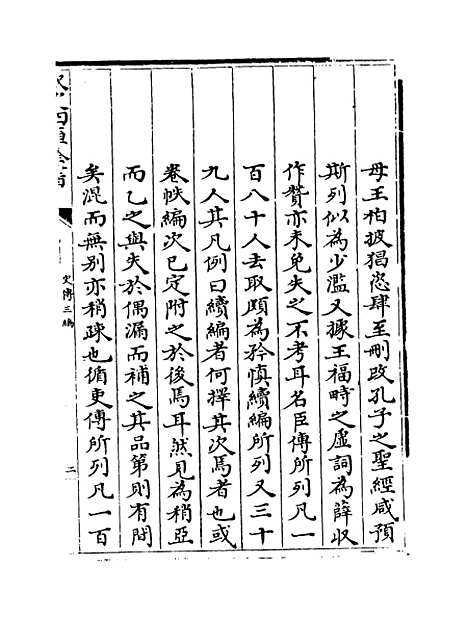 毋王柏披猖恣肆至刪改孔子之聖經咸預
斯列似為少濫又據王福畤之虛詞為薛收
作贊亦未免失之不考耳名臣傳所列凡一
百八十人去取頗為矜慎續編所列又三十
九人其凡例曰續編者何擇其次焉者也或
卷帙編次已定附之於後焉耳然見為稍亞
而乙之與失於偶漏而補之其品第則有間
矣混而無別亦稍疎也循吏傳所列凡一百
史傳三編
二